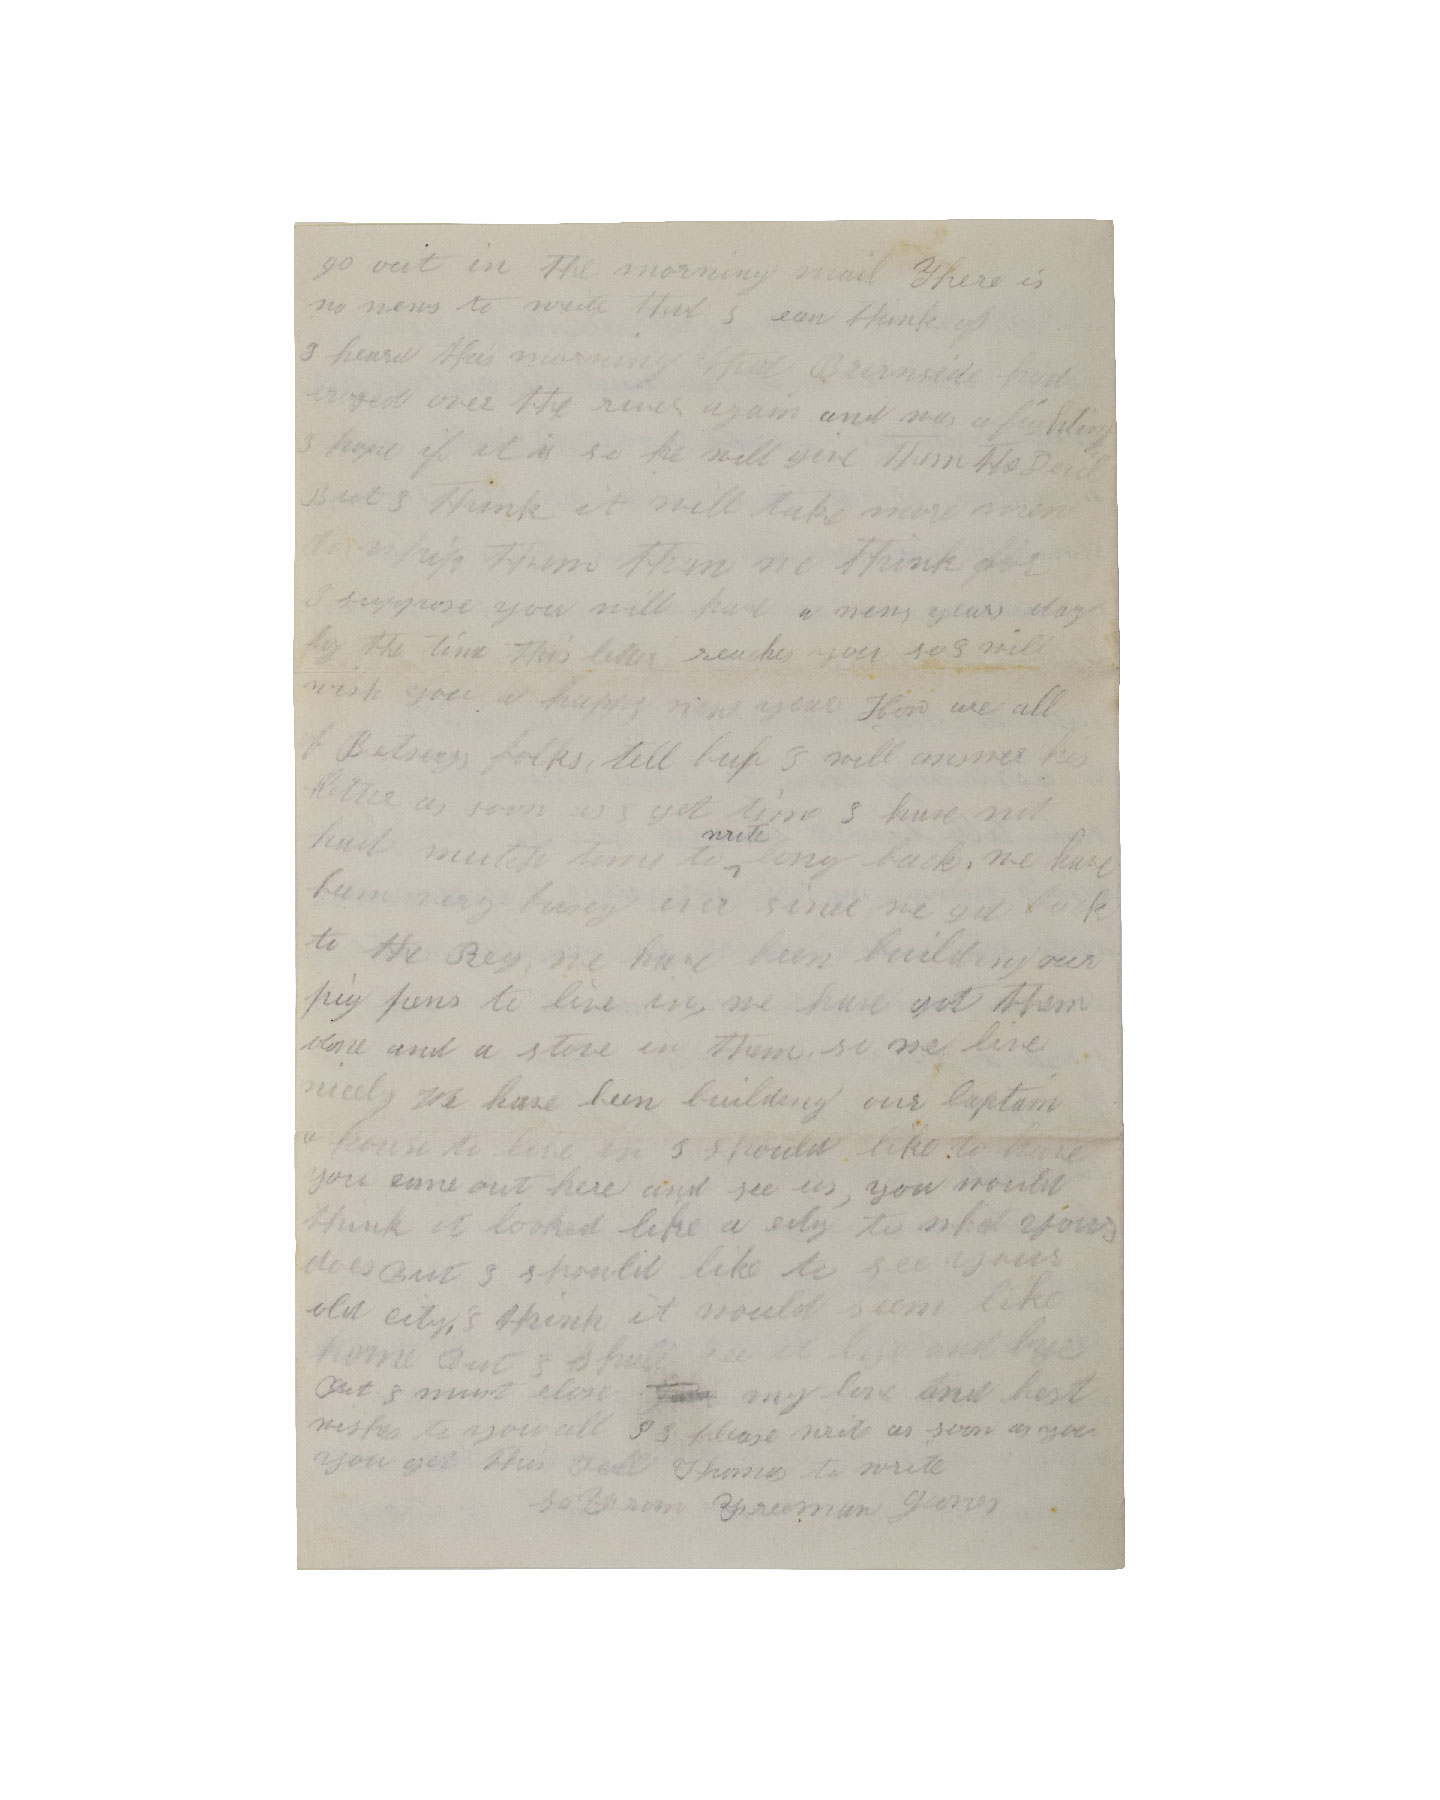 go out in the morning mail There is
no news to write that I can think of
I heard this morning that Burnside had
crosed over the river again and was a fighting
I hope if it is so he will give them the Devil
But I think it will take more men
to whip them then we think for
I suppose you will have a news years day
by the time this letter reaches you so I will
wish you a happy new year How are all
of Betseys folks, tell bub I will answer his
letter as soon as I get time I have not
had mutch time to write long back, we have
bum very busey ever since we got back
to the Reg, we have been building our
pig pens to live in, we have got them
done and a stove in them, so we live
nicely We have been building our Captain
a house to live in I should like to have
you come out here and see us, you would
think it looked like a city to what yours
does But I should like to see your
old city, I think it would seem like
home But I shall see it by and bye
But I must close my love and best
wishes to you all I I please write as soon as you
you get this Tell Thomas to write
so From Freeman Jones